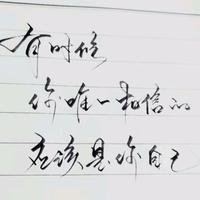 有时候
你唯一相信的
应该是你自己